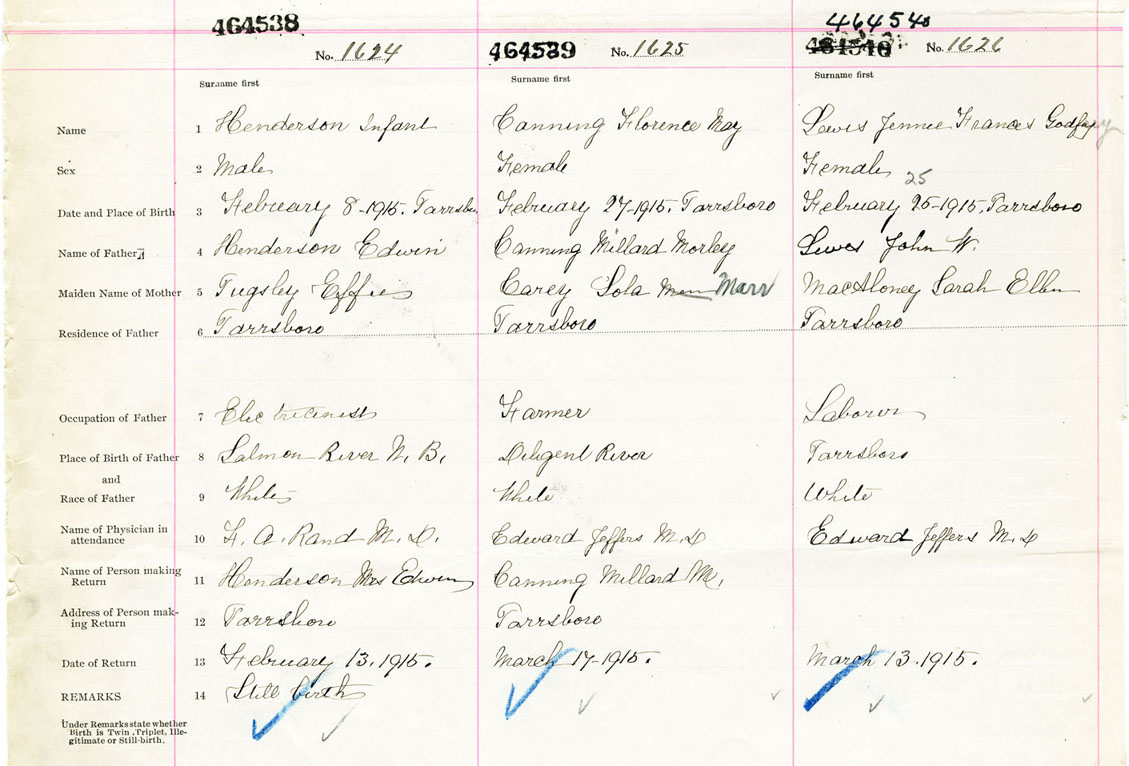 464538 464539 464540
464548
No. 1624 No. 1625 No. 1626
Surname first Surname first Surname first
Name 1 Henderson Infant Canning Florence May Lewis Jennie Frances Godfrey
Sex 2 Male Female Female
25
Date and Place of Birth 3 February 8-1915. Parrsboro February 27-1915. Parrsboro February 26-1915, Parrsboro
Name of Father 4 Henderson Edwin Canning Millard Morley Lewis John W.
Maiden Name of Mother 5 Pugsley Effie Carey Lola Marr MacAloney Sarah Ellen
Residence of Father 6 Parrsboro Parrsboro Parrsboro
Occupation of Father 7 Electricinist Farmer Laborer
Place of Birth of Father 8 Salmon River N. B. Diligent River Parrsboro
and
Race of Father 9 White White White
Name of Physician in
attendance 10 F. A. Rand M. D. Edward Jeffers M. D Edward Jeffers M. D
Name of Person making
Return 11 Henderson Mrs Edwin Canning Millard M.
Address of Person mak-
ing Return 12 Parrsboro Parrsboro
Date of Return 13 February 13. 1915. March 17-1915. March 13. 1915.
REMARKS 14 Still birth
Under Remarks state whether
Birth is Twin, Triplet, Ille-
gitimate or Still-birth.